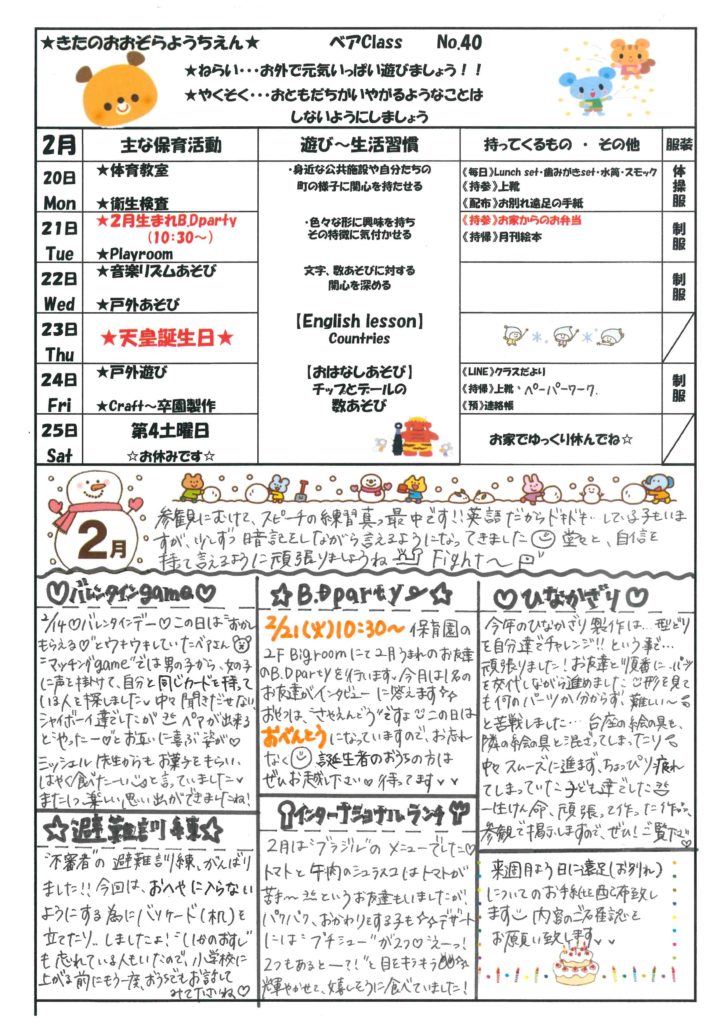 ★きたのおおぞらようちえん★ ベアClass No.40
★ねらい・・・お外で元気いっぱい遊びましょう！！
★やくそく・・・おともだちがいやがるようなことは
しないようにしましょう
2月 主な保育活動 遊び～生活習慣 持ってくるもの ・ その他 服装
20日 Mon
★体育教室
★衛生検査
・身近な公共施設や自分たちの
町の様子に関心を持たせる
《毎日》Lunch set・歯みがきset・水筒・スモック
《持参》上靴
《配布》お別れ遠足の手紙
体操服
21日 Tue
★2月生まれB.Dparty
（10:30～）
★Playroom
・色々な形に興味を持ち
その特徴に気付かせる
《持参》お家からのお弁当
《持帰》月刊絵本
制服
22日 Wed
★音楽リズムあそび
★戸外あそび
文字、数あそびに対する
関心を深める
制服
23日 Thu
★天皇誕生日★
【English lesson】
Countries
24日 Fri
★戸外遊び
★Craft～卒園製作
【おはなしあそび】
チップとデールの
数あそび
《LINE》クラスだより
《持帰》上靴・ペーパーワーク.
《預》連絡帳
制服
25日 Sat
第4土曜日
☆お休みです☆
お家でゆっくり休んでね☆
2月
参観にむけて、スピーチの練習真っ最中です!!英語だからドキドキ…している子もいま
すが、少しずつ暗記をしながら言えるようになってきました 堂々と、自信を
持って言えるように頑張りましょうね Fight～
♡バレンタインgame♡
2/14♡バレンタインデー♡この日は"おかし
もらえる♡"とウキウキしていたベアさん
"マッキングgame"では男の子から、女の子
に声を掛けて、自分と同じカードを持って
いる人を探しました 中々聞きだせない
シャイボーイ達でしたが ペアが出来る
と"やったー♡"とお互いに喜ぶ姿が♡
ミッシェル先生からもお菓子をもらい、
はやく食べたーいと言っていました
また1つ楽しい思い出ができましたね!
☆B.Dparty☆
2/21(火)10:30～ 保育園の
2F Bigroomにて2月うまれのお友達
のB.Dpartyを行います。今月は1名の
お友達がインタビューに答えます☆
お花は、"さやえんどう"ですよ この日は
おべんとうになっていますので、お忘れ
なく 誕生者のおうちの方は
ぜひお越しください♡待ってます
♡ひなかざり♡
今年のひなかざり製作は…型どり
を自分達でチャレンジ!!という事で…
頑張りました!お友達と順番に、パーツ
を交代しながら進めました 形を見て
も何のパーツか分からず、難しい～
と苦戦しました…台座の絵の具と、
隣の絵の具と混ざってしまったり
中々スムーズに進まず、ちょっぴり疲れ
てしまっていた子ども達でした
一生けん命、頑張って作った作品、
参観で掲示しますので、ぜひ!ご覧ださい
☆避難訓練☆
"不審者"の避難訓練、がんばり
ました!!今回は、おへやに入らない
ようにする為にバリケード(机)を
立てたり…しましたよ!"いかのおすし"
も忘れている人もいたので、小学校に
上がる前にもう一度、おうちでもお話して
みてださいね♡
インターナショナルランチ
2月は"ブラジル"のメニューでした♡
トマトと牛肉のシュラスコはトマトが
苦手～というお友達もいましたが
パクパク、おかわりをする子も☆デザート
には"プチシュー"が2つ♡"えーっ!
2つもあるとー?!"と目をキラキラ
輝やかせて、嬉しそうに食べていました!
来週月よう日に遠足(お別れ)
についてのお手紙を配布致し
ます 内容のご確認を
お願い致します